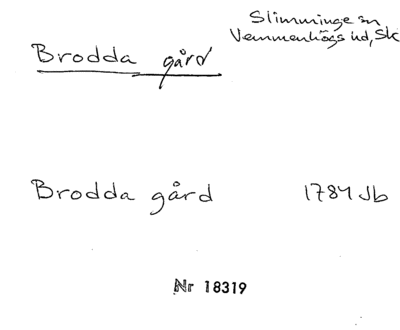 Slimminge sn
Vemmenhögs hd, Sk
Brodda gård
Brodda gård 1784 Jb
Nr 18319